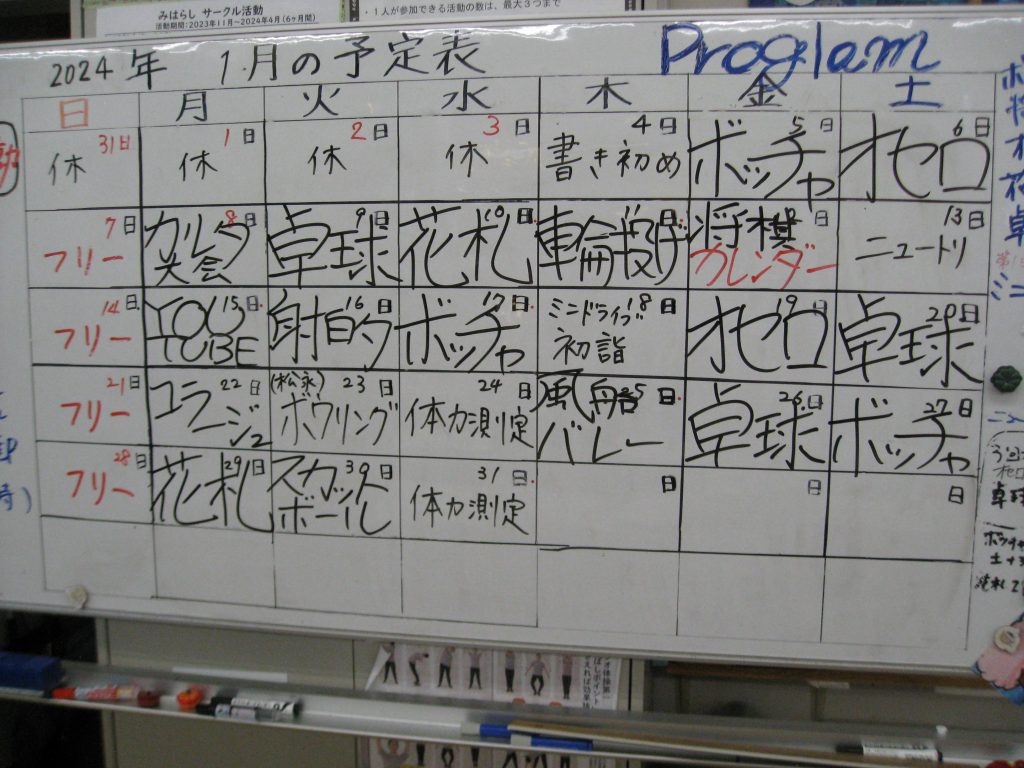 みはらし サークル活動
活動期間:2023年11月～2024年4月(6ヶ月間)
・1人が参加できる活動の数は、最大3つまで
2024年 1月の予定表 Proglam
日 月 火 水 木 金 土
31日 1日 2日 3日 4日 5日 6日
休 休 休 休 書き初め ボッチャ オセロ
7日 8日 9日 10日 11日 12日 13日
フリー カルタ大会 卓球 花札 車輪投げ 将棋 ニュートリ
カレンダー
14日 15日 16日 17日 18日 19日 20日
フリー YOU TUBE 射的 ボッチャ ミニドライブ 初詣 オセロ 卓球
21日 22日 23日 24日 25日 26日 27日
フリー コラージュ (松永)ボウリング 体力測定 風船バレー 卓球 ボッチャ
28日 29日 30日 31日 日 日 日
フリー 花札 スカットボール 体力測定